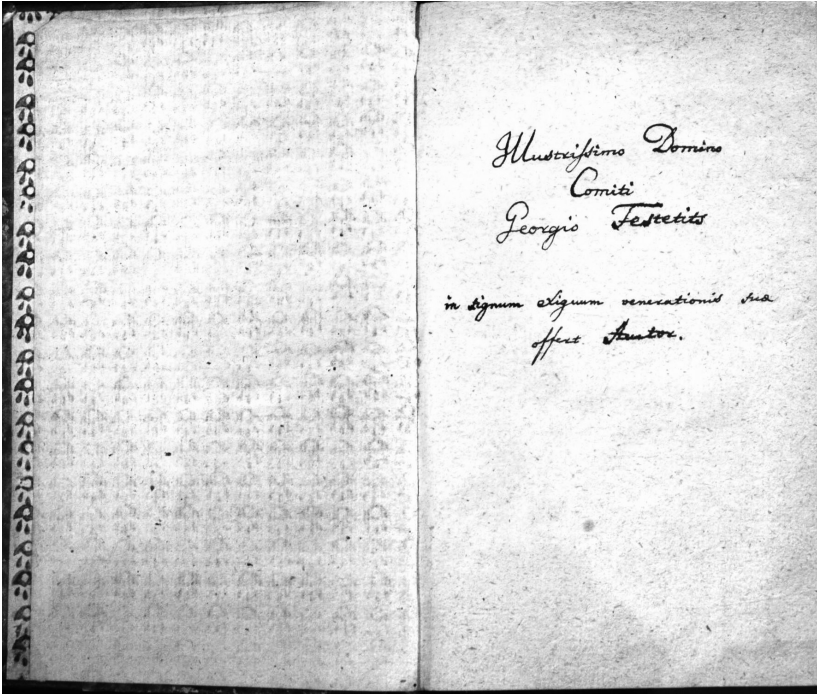 Illustrissimo Domino
Comiti
Georgio Festetits
in signum exiguum venerationis suæ
offert Auctor.